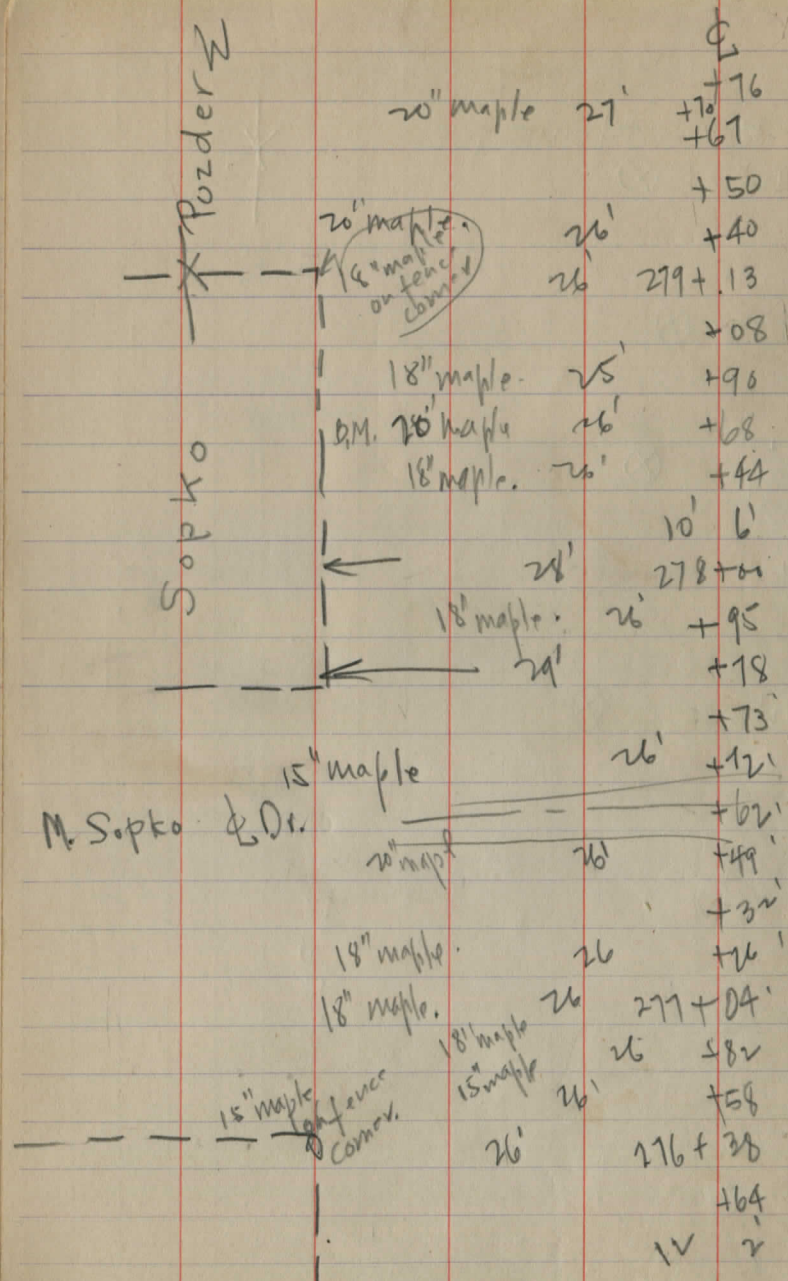 ℄
+76
20" maple 27' +70
+67
Pozder
+50
20" maple. 26' +40
18" maple on fence corner 26' 279+.13
+08
18" maple. 25' +90
20" maple 26' +68
18" maple. 26' +44
Sopko
10' 6'
28' 278+00
18" maple. 26' +95
29' +78
+73
15" maple 26' +72
M. Sopko ℄ Dr. +62
20" mapl 26' +49
+32
18" maple. 26 +26
18" maple. 26 277+04
18" maple 26 +82
15" maple 26' +58
15" maple on fence corner. 26' 276+38
+64
12 2'